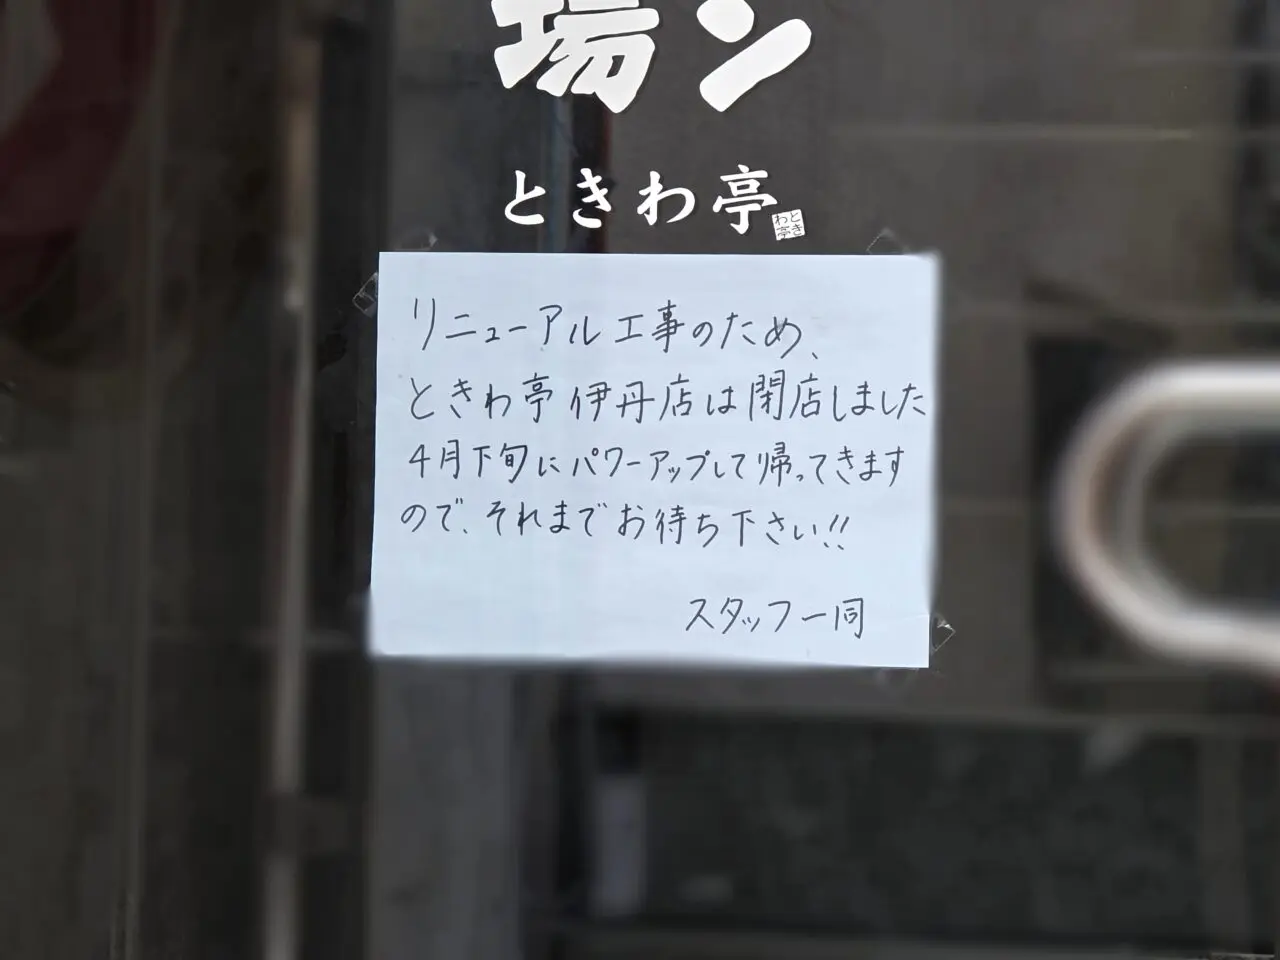 場ン
ときわ亭
ときわ亭
リニューアル工事のため、
ときわ亭 伊丹店は閉店しました
4月下旬にパワーアップして帰ってきます
ので、それまでお待ち下さい!!
スタッフ一同